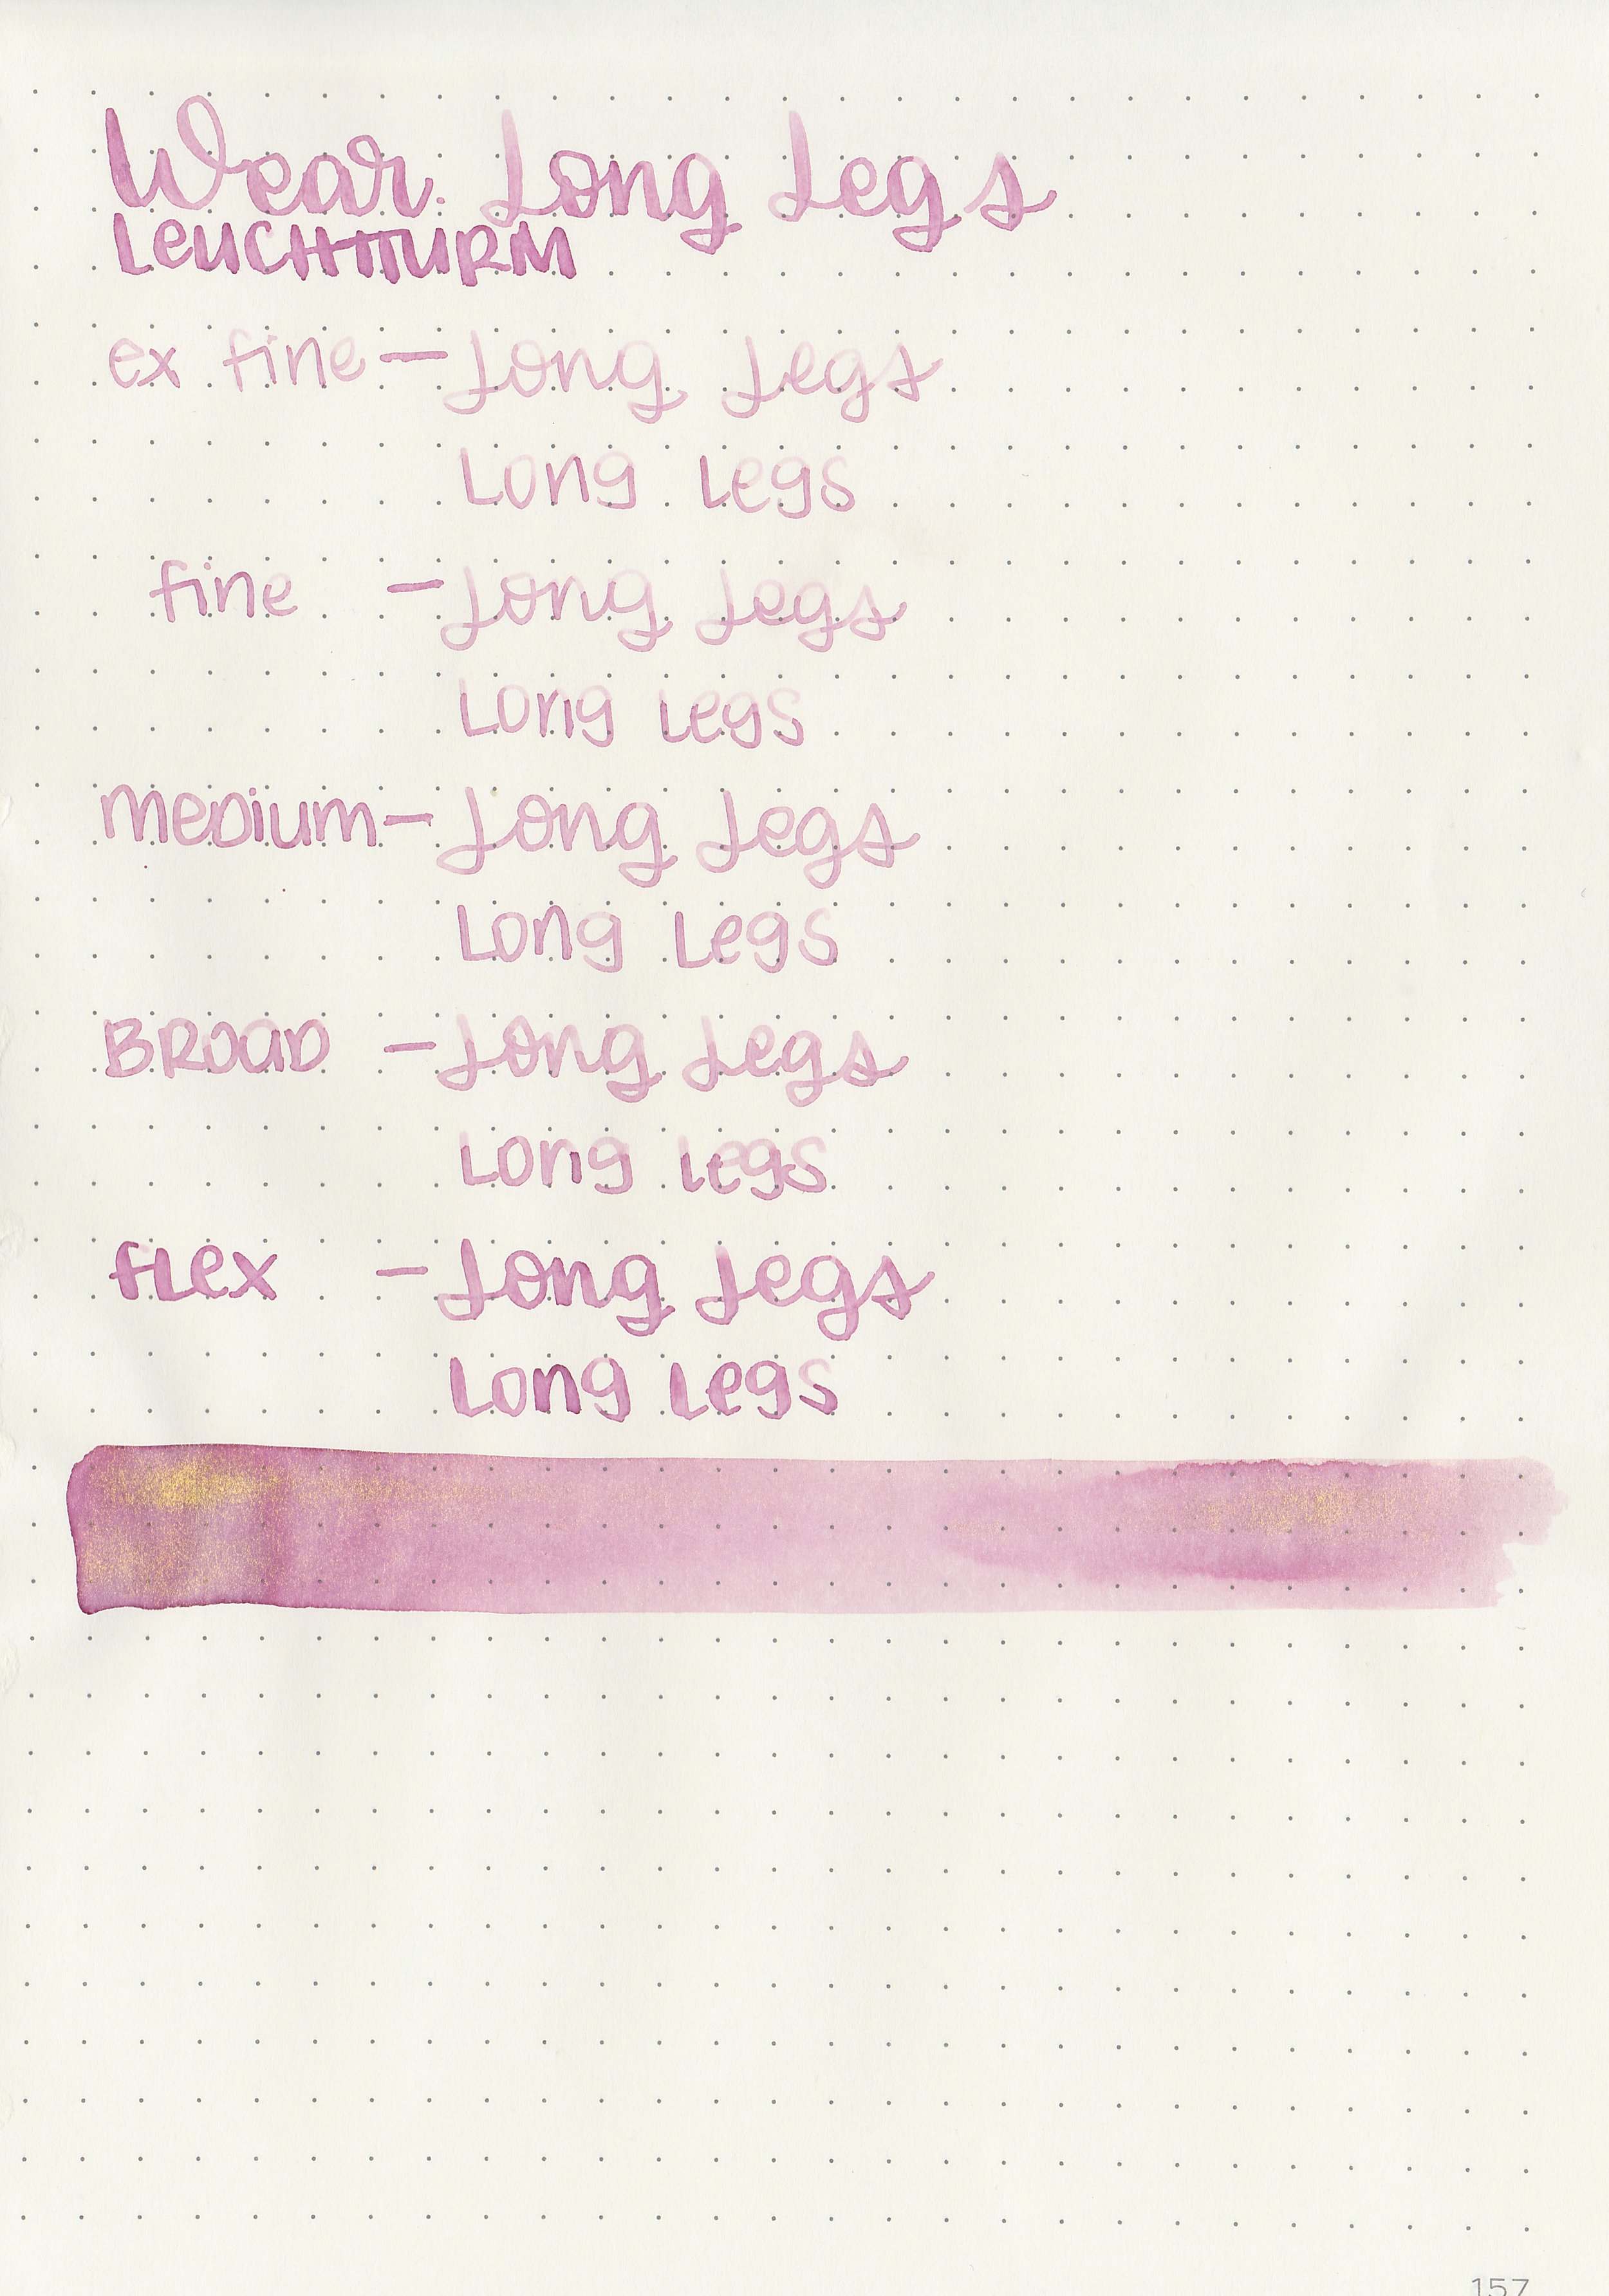 Wear. Long Legs
LEUCHTTURM
ex fine - Long Legs
Long Legs
fine - Long Legs
Long Legs
MEDium - Long Legs
Long Legs
BROAD - Long Legs
Long Legs
flex - Long Legs
Long Legs
157